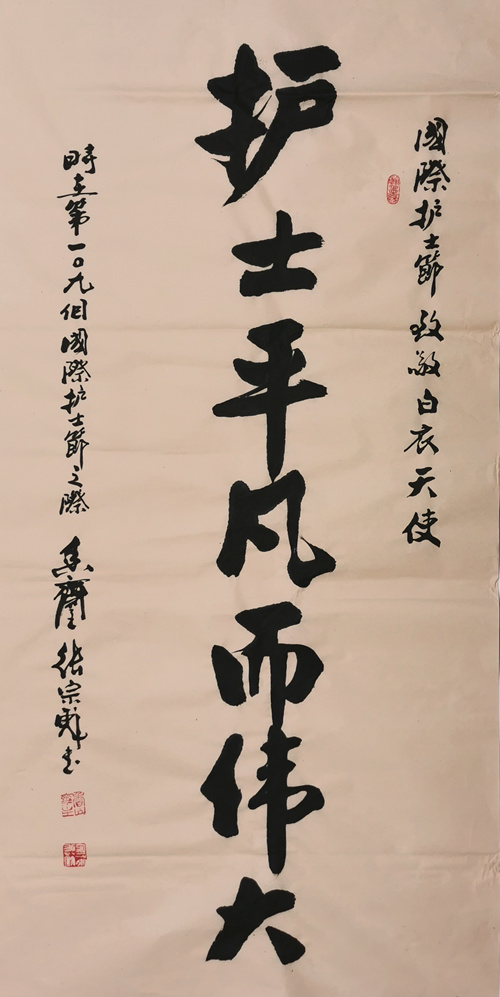 國際护士節 致敬白衣天使
护士平凡而伟大
時在第一〇九個國際护士節之際 张宗书